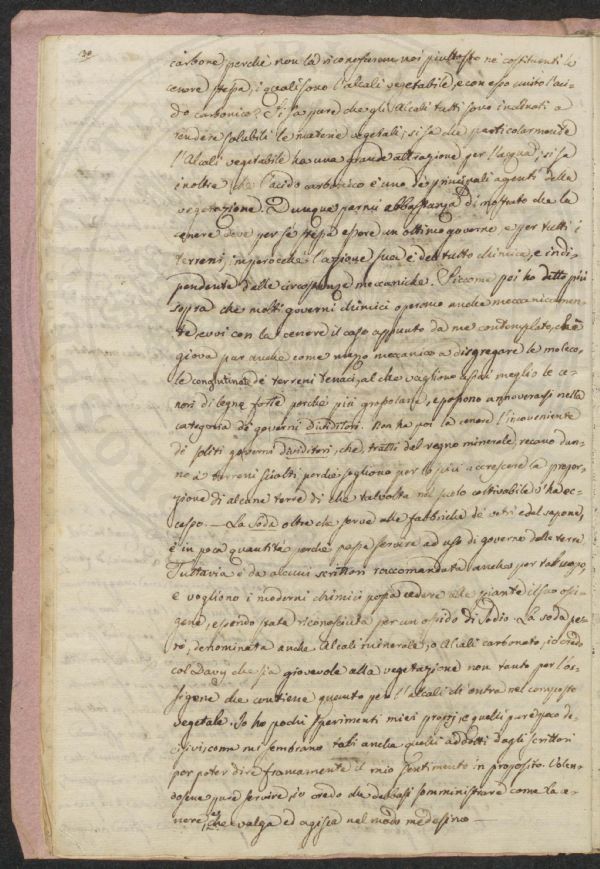 carbone perchè non la riconosceremo noi piuttosto ne' costituenti la
cenere stessa, i quali sono l'alcali vegetabile, e con esso unito l'aci-
do carbonico? Si sa pure che gli Alcali tutti sono inclinati a
rendere solubili le materie vegetali; si sa che particolarmente
l'Alcali vegetabile ha una grande attrazione per l'acqua; si sa
inoltre che l'acido carbonico è uno de' principali agenti della
vegetazione. Dunque parmi abbastanza dimostrato che la
cenere deve per se stessa essere un ottimo governo, e per tutti i
terreni, imperocchè l'azione sua è del tutto chimica, e indi-
pendente dalle circostanze meccaniche. Siccome poi ho detto più
sopra che molti governi chimici operano anche meccanicamen-
te, evvi con la cenere il caso appunto da me contemplato, che
giova pur anche come mezzo meccanico a disgregare le moleco-
le conglutinate de' terreni tenaci, al che vagliono assai meglio le ce-
neri di legne forti perchè più grossolane, e possono annoverarsi nella
categoria de' governi dividitori. Non ha poi la cenere l'inconveniente
di soliti governi dividitori, che, tratti dal regno minerale, recano dan-
no a' terreni sciolti perchè sogliono per lo più accrescere la propor-
zione di alcune terre di che talvolta nel suolo coltivabile v'ha ec-
cesso. — La Soda oltre che serve alle fabbriche de' vetri e del sapone,
è in poca quantità perchè possa servire ad uso di governo delle terre.
Tuttavia è da alcuni scrittori raccomandata anche per tal uopo,
e vogliono i moderni chimici possa cedere alle piante il suo ossi-
gene, essendo stata riconosciuta per un ossido di Sodio. La soda pe-
rò, denominata anche Alcali minerale, o Alcali carbonato, io credo
col Davy che sia giovevole alla vegetazione non tanto per l'os-
sigene che contiene quanto per l'alcali che entra nel composto
vegetale. Io ho pochi sperimenti miei proprj, e quelli pure poco de-
cisivi, come mi sembrano tali anche quelli addotti dagli scrittori
per poter dire francamente il mio sentimento in proposito. Volen-
dosene pure servire, io credo che debbasi somministrare come la ce-
nere, e che valga ed agisca nel modo medesimo —